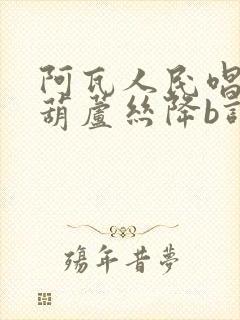 阿瓦人民唱
葫蘆絲降b
殤年昔夢